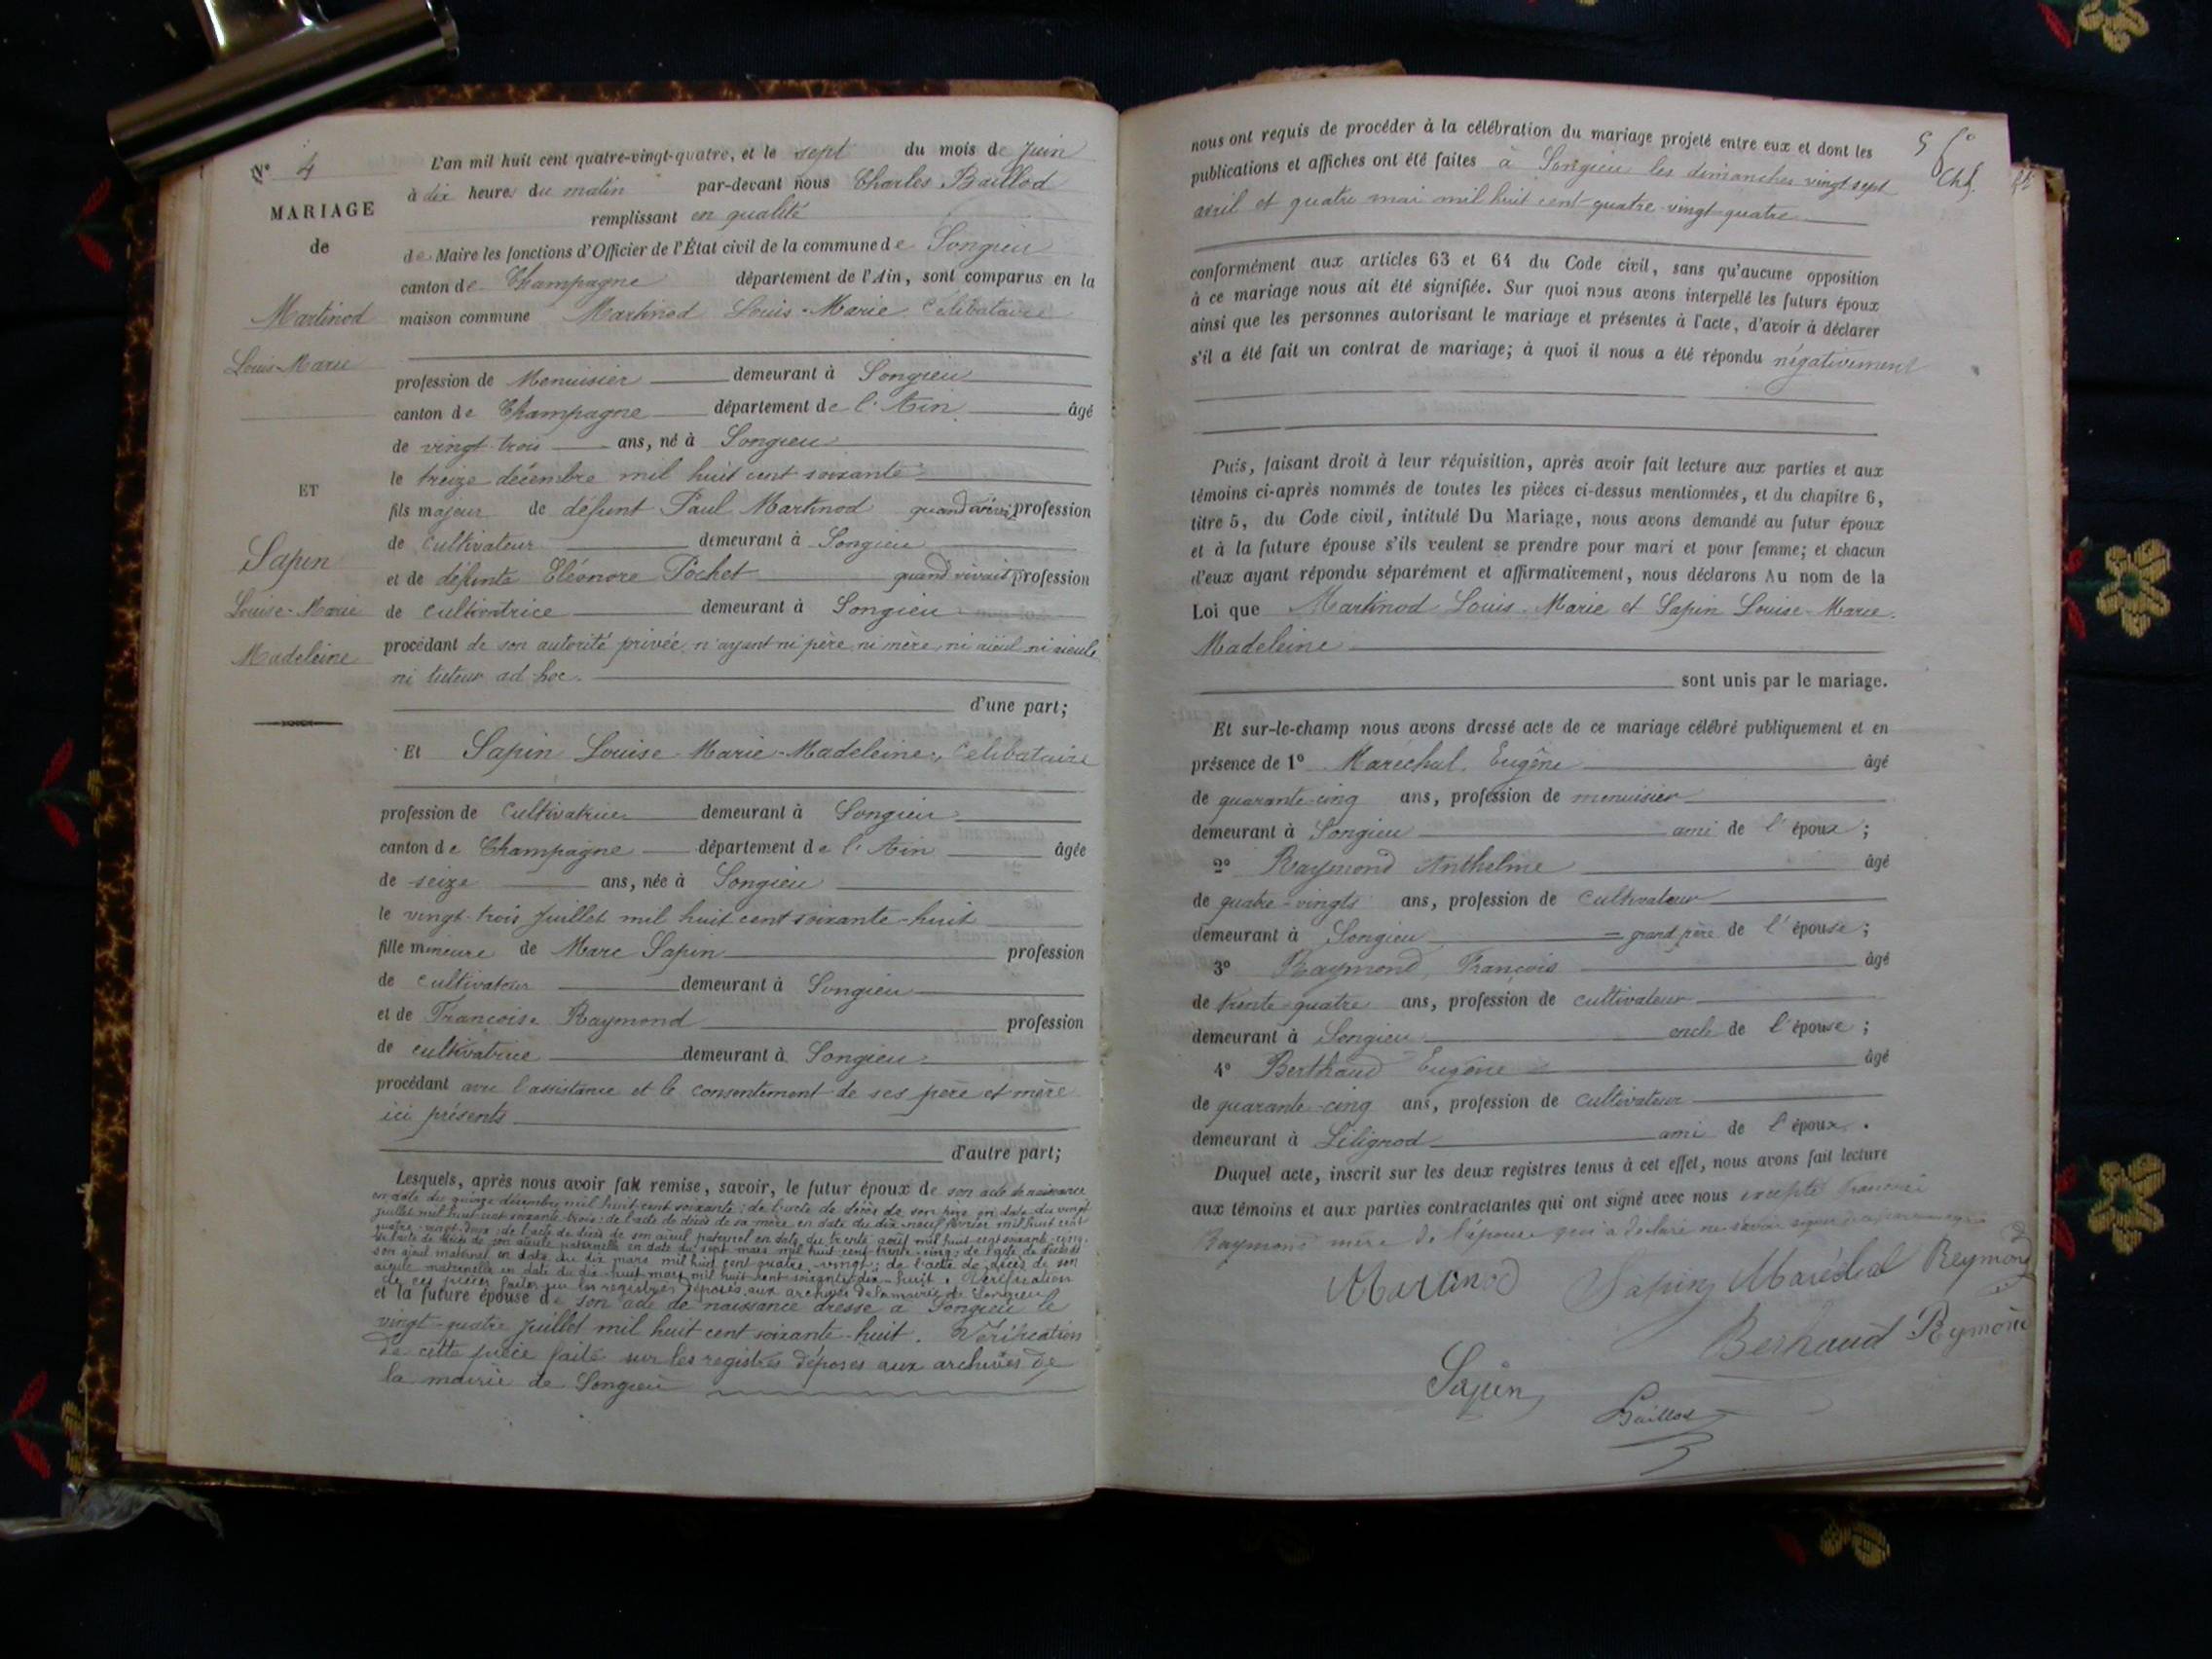 N° 4
MARIAGE
de
Martinod
Louis-Marie
ET
Sapin
Louise-Marie
Madeleine
L'an mil huit cent quatre-vingt-quatre, et le sept du mois de Juin
à dix heures du matin par-devant nous Charles Baillod
remplissant en qualité
de Maire les fonctions d'Officier de l'État civil de la commune de Songieu
canton de Champagne département de l'Ain, sont comparus en la
maison commune Martinod Louis-Marie Celibataire
profession de Menuisier demeurant à Songieu
canton de Champagne département de l'Ain âgé
de vingt-trois ans, né à Songieu
le treize décembre mil huit cent soixante
fils majeur de défunt Paul Martinod quand vivait profession
de cultivateur demeurant à Songieu
et de défunte Eléonore Pochet quand vivait profession
de cultivatrice demeurant à Songieu
procédant de son autorité privée n'ayant ni père, ni mère, ni aïeul ni aieule
ni tuteur ad-hoc.
d'une part;
Et Sapin Louise-Marie-Madeleine, Celibataire
profession de Cultivatrice demeurant à Songieu
canton de Champagne département de l'Ain âgée
de seize ans, née à Songieu
le vingt-trois Juillet mil huit cent soixante-huit
fille mineure de Marc Sapin profession
de cultivateur demeurant à Songieu
et de Françoise Raymond profession
de cultivatrice demeurant à Songieu
procédant avec l'assistance et le consentement de ses père et mère
ici présents
d'autre part;
Lesquels, après nous avoir fait remise, savoir, le futur époux de son acte de naissance
en date du quinze décembre mil huit cent soixante; de l'acte de décès de son père en date du vingt
juillet mil huit cent soixante-trois; de l'acte de décès de sa mère en date du dix-neuf février mil huit cent
quatre-vingt-deux; de l'acte de décès de son aieul paternel en date du trente août mil huit cent soixante-cinq;
de l'acte de décès de son aieule paternelle en date du sept mars mil huit cent trente-cinq; de l'acte de décès de
son aieul maternel en date du dix mars mil huit cent quatre-vingt; de l'acte de décès de son
aieule maternelle en date du dix-huit mars mil huit cent soixante-dix-huit. Vérification
de ces pièces faites sur les registres déposés aux archives de la mairie de Songieu
et la future épouse de son acte de naissance dressé à Songieu le
vingt-quatre Juillet mil huit cent soixante-huit. Vérification
de cette pièce faite sur les registres déposés aux archives de
la mairie de Songieu
nous ont requis de procéder à la célébration du mariage projeté entre eux et dont les
publications et affiches ont été faites à Songieu les dimanches vingt sept
avril et quatre mai mil huit cent quatre-vingt-quatre
conformément aux articles 63 et 64 du Code civil, sans qu'aucune opposition
à ce mariage nous ait été signifiée. Sur quoi nous avons interpellé les futurs époux
ainsi que les personnes autorisant le mariage et présentes à l'acte, d'avoir à déclarer
s'il a été fait un contrat de mariage; à quoi il nous a été répondu négativement
Puis, faisant droit à leur réquisition, après avoir fait lecture aux parties et aux
témoins ci-après nommés de toutes les pièces ci-dessus mentionnées, et du chapitre 6,
titre 5, du Code civil, intitulé Du Mariage, nous avons demandé au futur époux
et à la future épouse s'ils veulent se prendre pour mari et pour femme; et chacun
d'eux ayant répondu séparément et affirmativement, nous déclarons Au nom de la
Loi que Martinod Louis-Marie et Sapin Louise-Marie
Madeleine
sont unis par le mariage.
Et sur-le-champ nous avons dressé acte de ce mariage célébré publiquement et en
présence de 1° Maréchal Eugène âgé
de quarante-cinq ans, profession de menuisier
demeurant à Songieu ami de l'époux;
2° Raymond Anthelme âgé
de quatre-vingts ans, profession de cultivateur
demeurant à Songieu grand père de l'épouse;
3° Raymond François âgé
de trente-quatre ans, profession de cultivateur
demeurant à Songieu oncle de l'épouse;
4° Berthaud Eugène âgé
de quarante-cinq ans, profession de cultivateur
demeurant à Lilignod ami de l'époux.
Duquel acte, inscrit sur les deux registres tenus à cet effet, nous avons fait lecture
aux témoins et aux parties contractantes qui ont signé avec nous excepté Françoise
Raymond mère de l'épouse qui a déclaré ne savoir signer
Martinod Sapin Maréchal Reymond
Berhaud Reymond
Sapin
Baillod